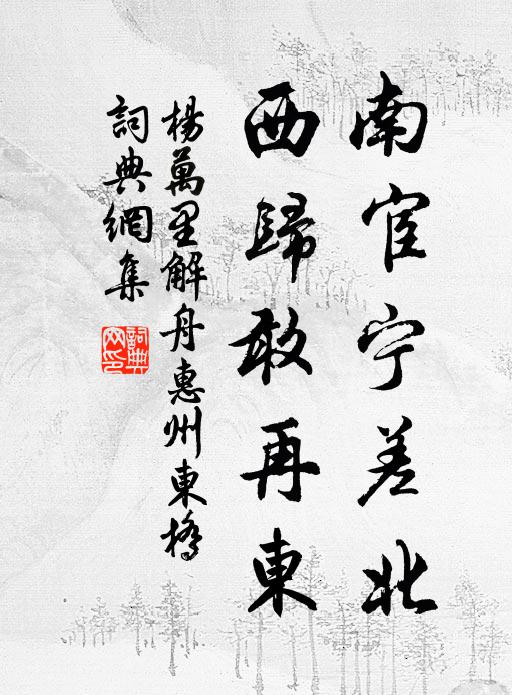 南宦宁差北
西歸敢再東
楊萬里解舟惠州東橋
詞典網集
詞典网印